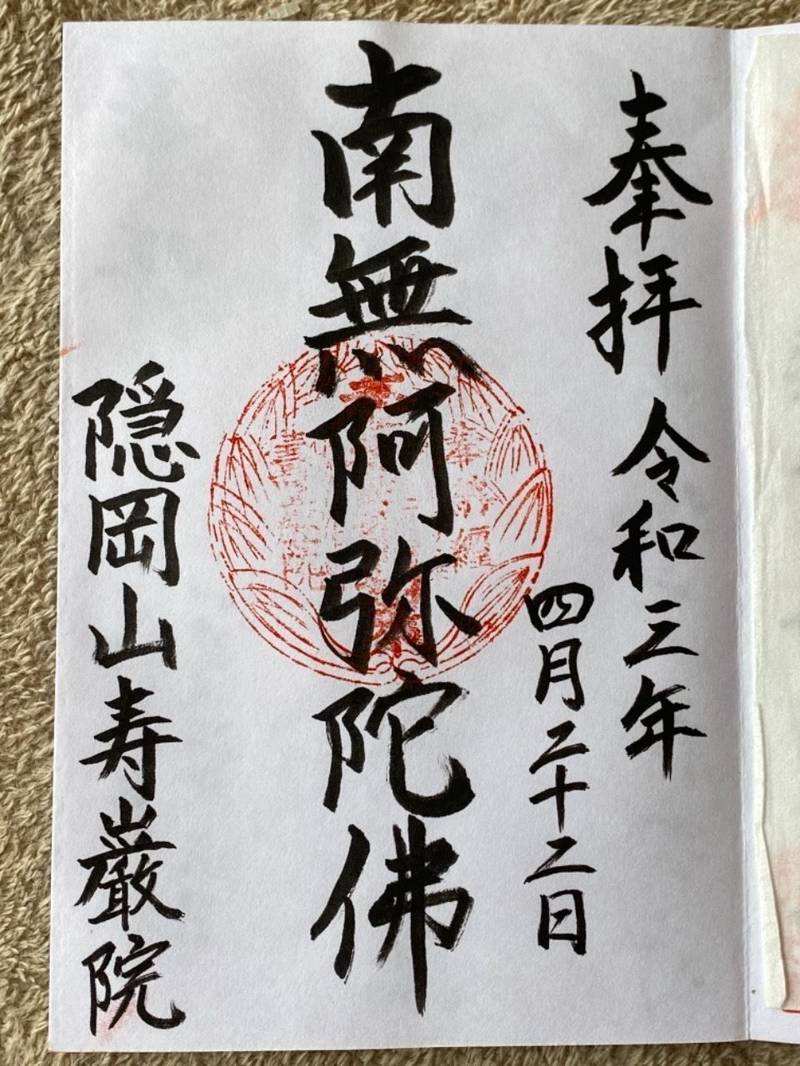 奉拝 令和三年
四月二十二日
南無阿弥陀佛
隠岡山寿巌院